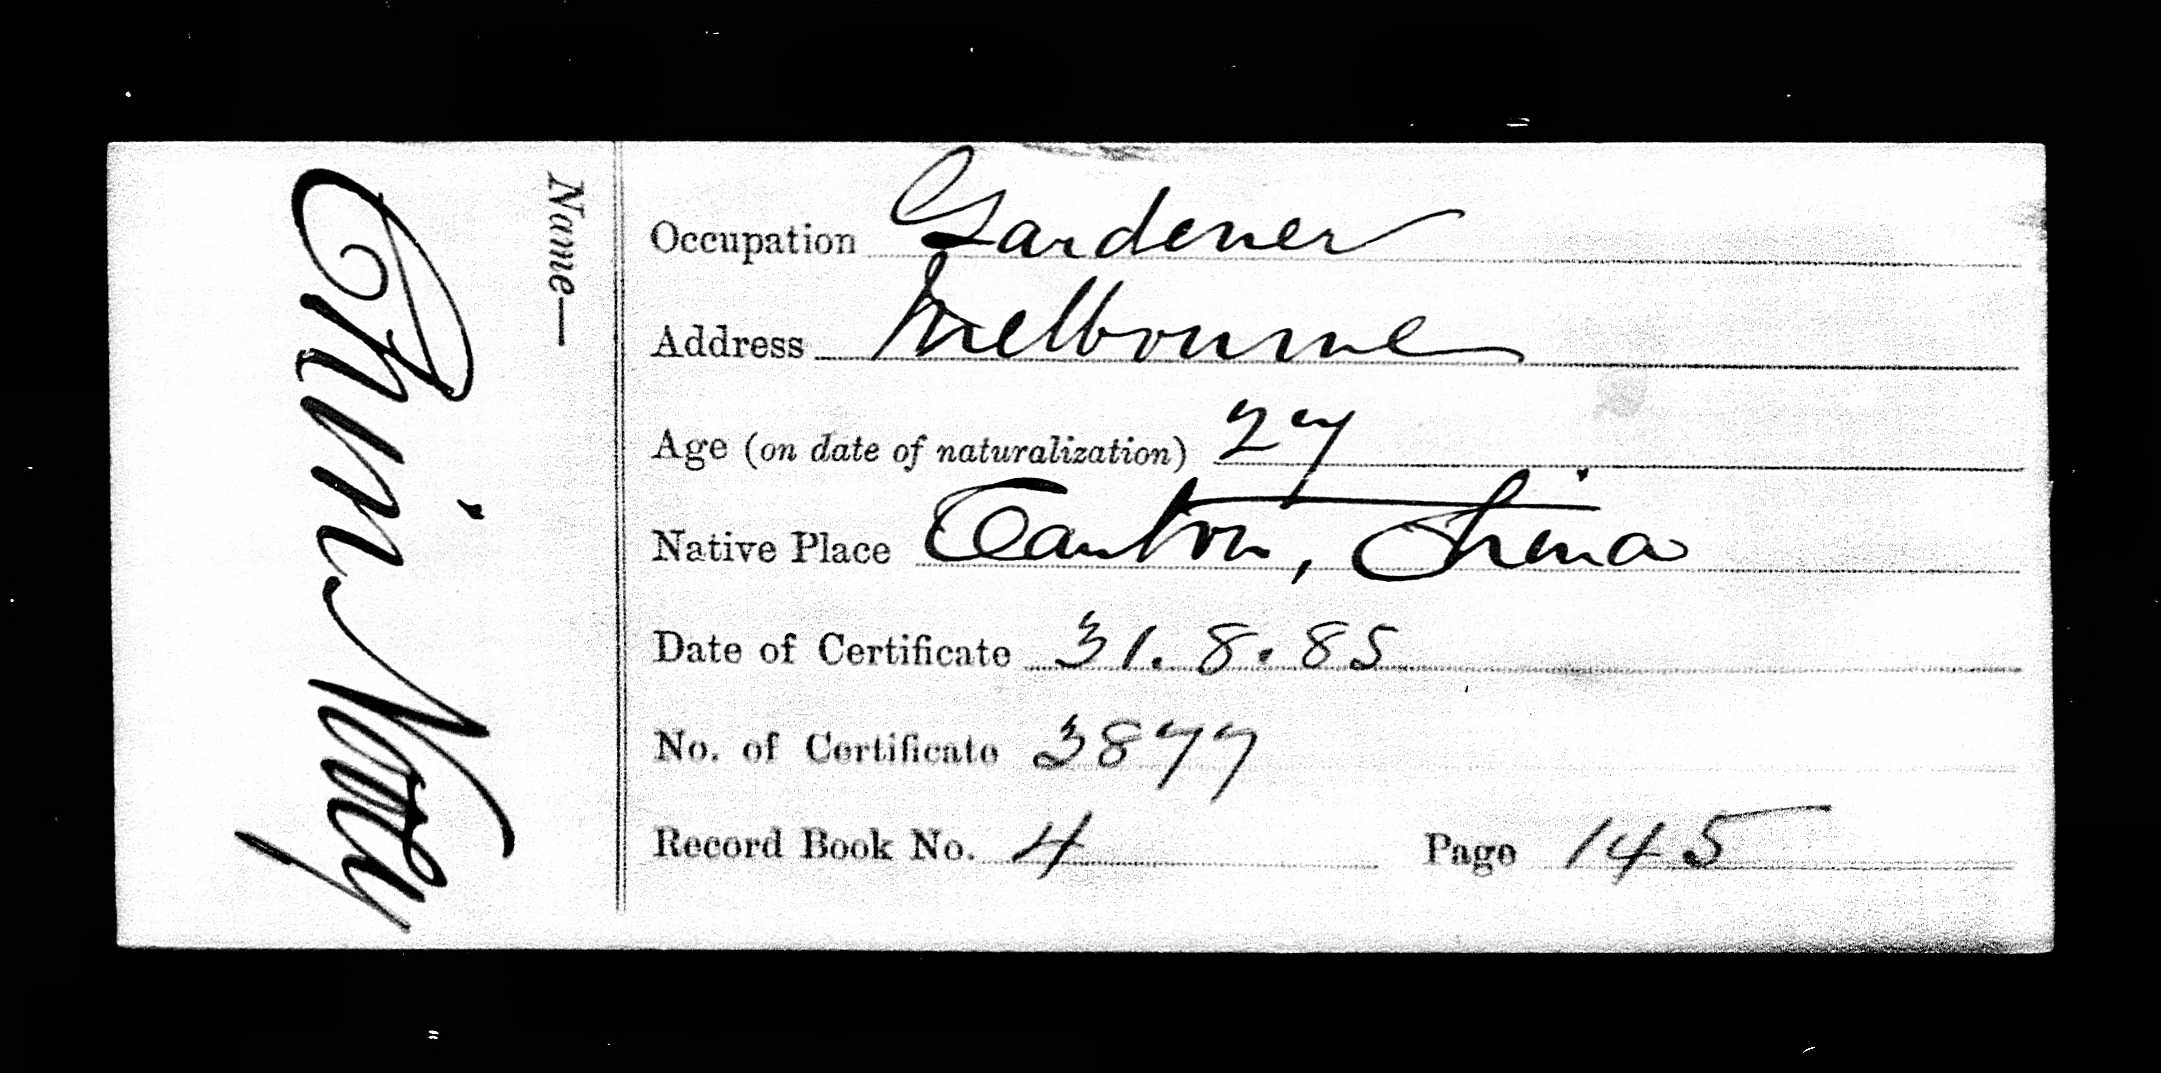 Name— Chin
Occupation Gardener
Address Melbourne
Age (on date of naturalization) 27
Native Place Canton, China
Date of Certificate 31.8.85
No. of Certificate 3877
Record Book No. 4 Page 145